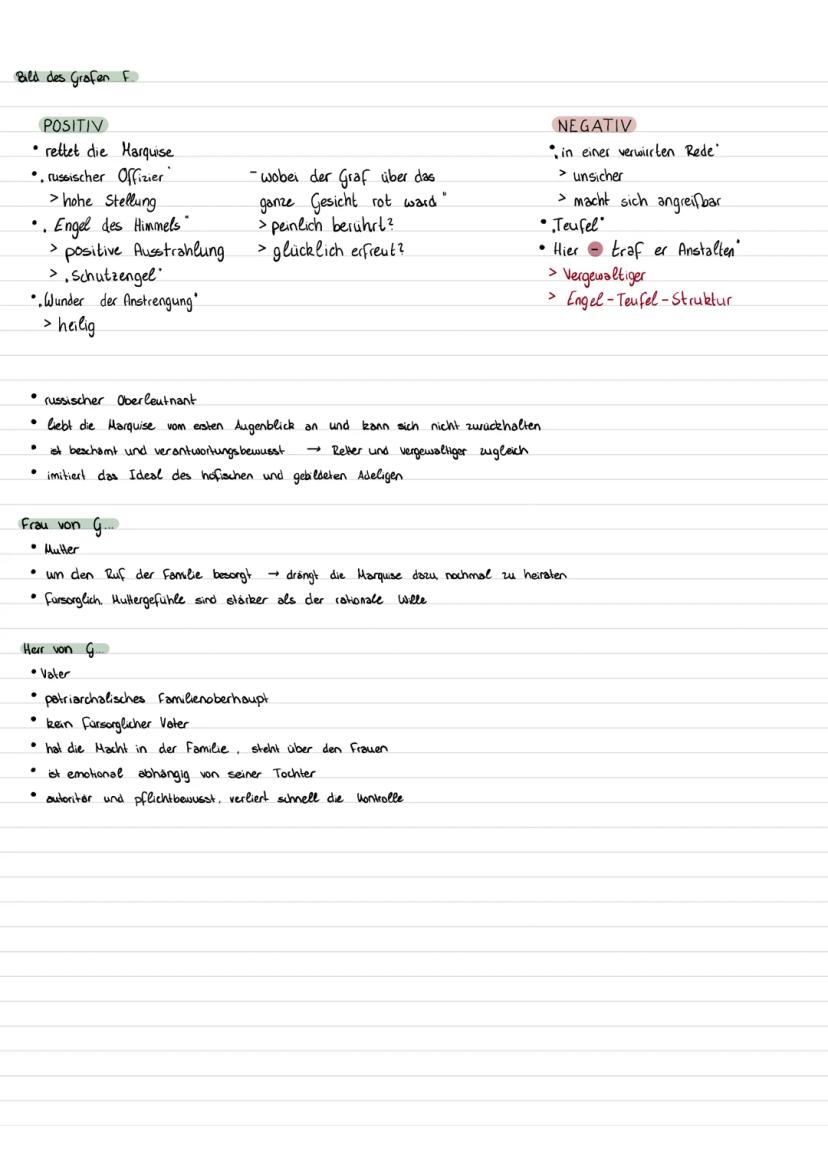 Bild des Grafen F.
POSITIV
• rettet die Marquise
• „russischer Offizier"
> hohe Stellung
• „Engel des Himmels"
> positive Ausstrahlung
> „Schutzengel"
• „Wunder der Anstrengung"
> heilig
- wobei der Graf über das
ganze Gesicht rot ward"
> peinlich berührt?
> glücklich erfreut?
NEGATIV
• „in einer verwirrten Rede"
> unsicher
> macht sich angreifbar
• „Teufel"
• Hier - traf er Anstalten"
> Vergewaltiger
> Engel-Teufel-Struktur
• russischer Oberleutnant
• liebt die Marquise vom ersten Augenblick an und kann sich nicht zurückhalten
• ist beschämt und verantwortungsbewusst → Retter und vergewaltiger zugleich
• imitiert das Ideal des höfischen und gebildeten Adeligen
Frau von G...
• Mutter
• um den Ruf der Familie besorgt → drängt die Marquise dazu, nochmal zu heiraten
• fürsorglich, Muttergefühle sind stärker als der rationale Wille
Herr von G...
• Vater
• patriarchalisches Familienoberhaupt
• kein fürsorglicher Vater
• hat die Macht in der Familie, steht über den Frauen
• ist emotional abhängig von seiner Tochter
• autoritär und pflichtbewusst, verliert schnell die Kontrolle